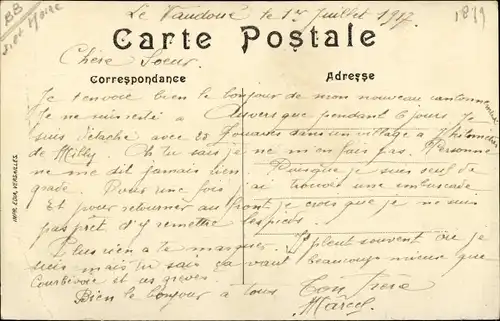 BB
S. et Marne
1879
Le Vaudoué le 1er Juillet 1917
Carte Postale
Chère Soeur.
Correspondance
Adresse
Je t'envoie bien le bonjour de mon nouveau cantonnement
Je ne suis resté a Auvers que pendant 6 jours. Je
suis détaché avec 25 Zouaves dans un village a 7 kilomètres
de Milly. Oh tu sais je ne m'en fais pas. Personne
ne me dit jamais rien Puisque je suis seul de
grade. Pour une fois j'ai trouver une embuscade
Et pour retourner au front je crois que je ne suis
pas prêt d'y remettre les pieds.
Plus rien a te marquer. Il pleut souvent où je
suis mais tu sais ça vaut beaucoup mieux que
Courbevoie et ses grèves.
Bien le bonjour a tous Ton Frère
Marcel
IMP. EDIA. VERSAILLES